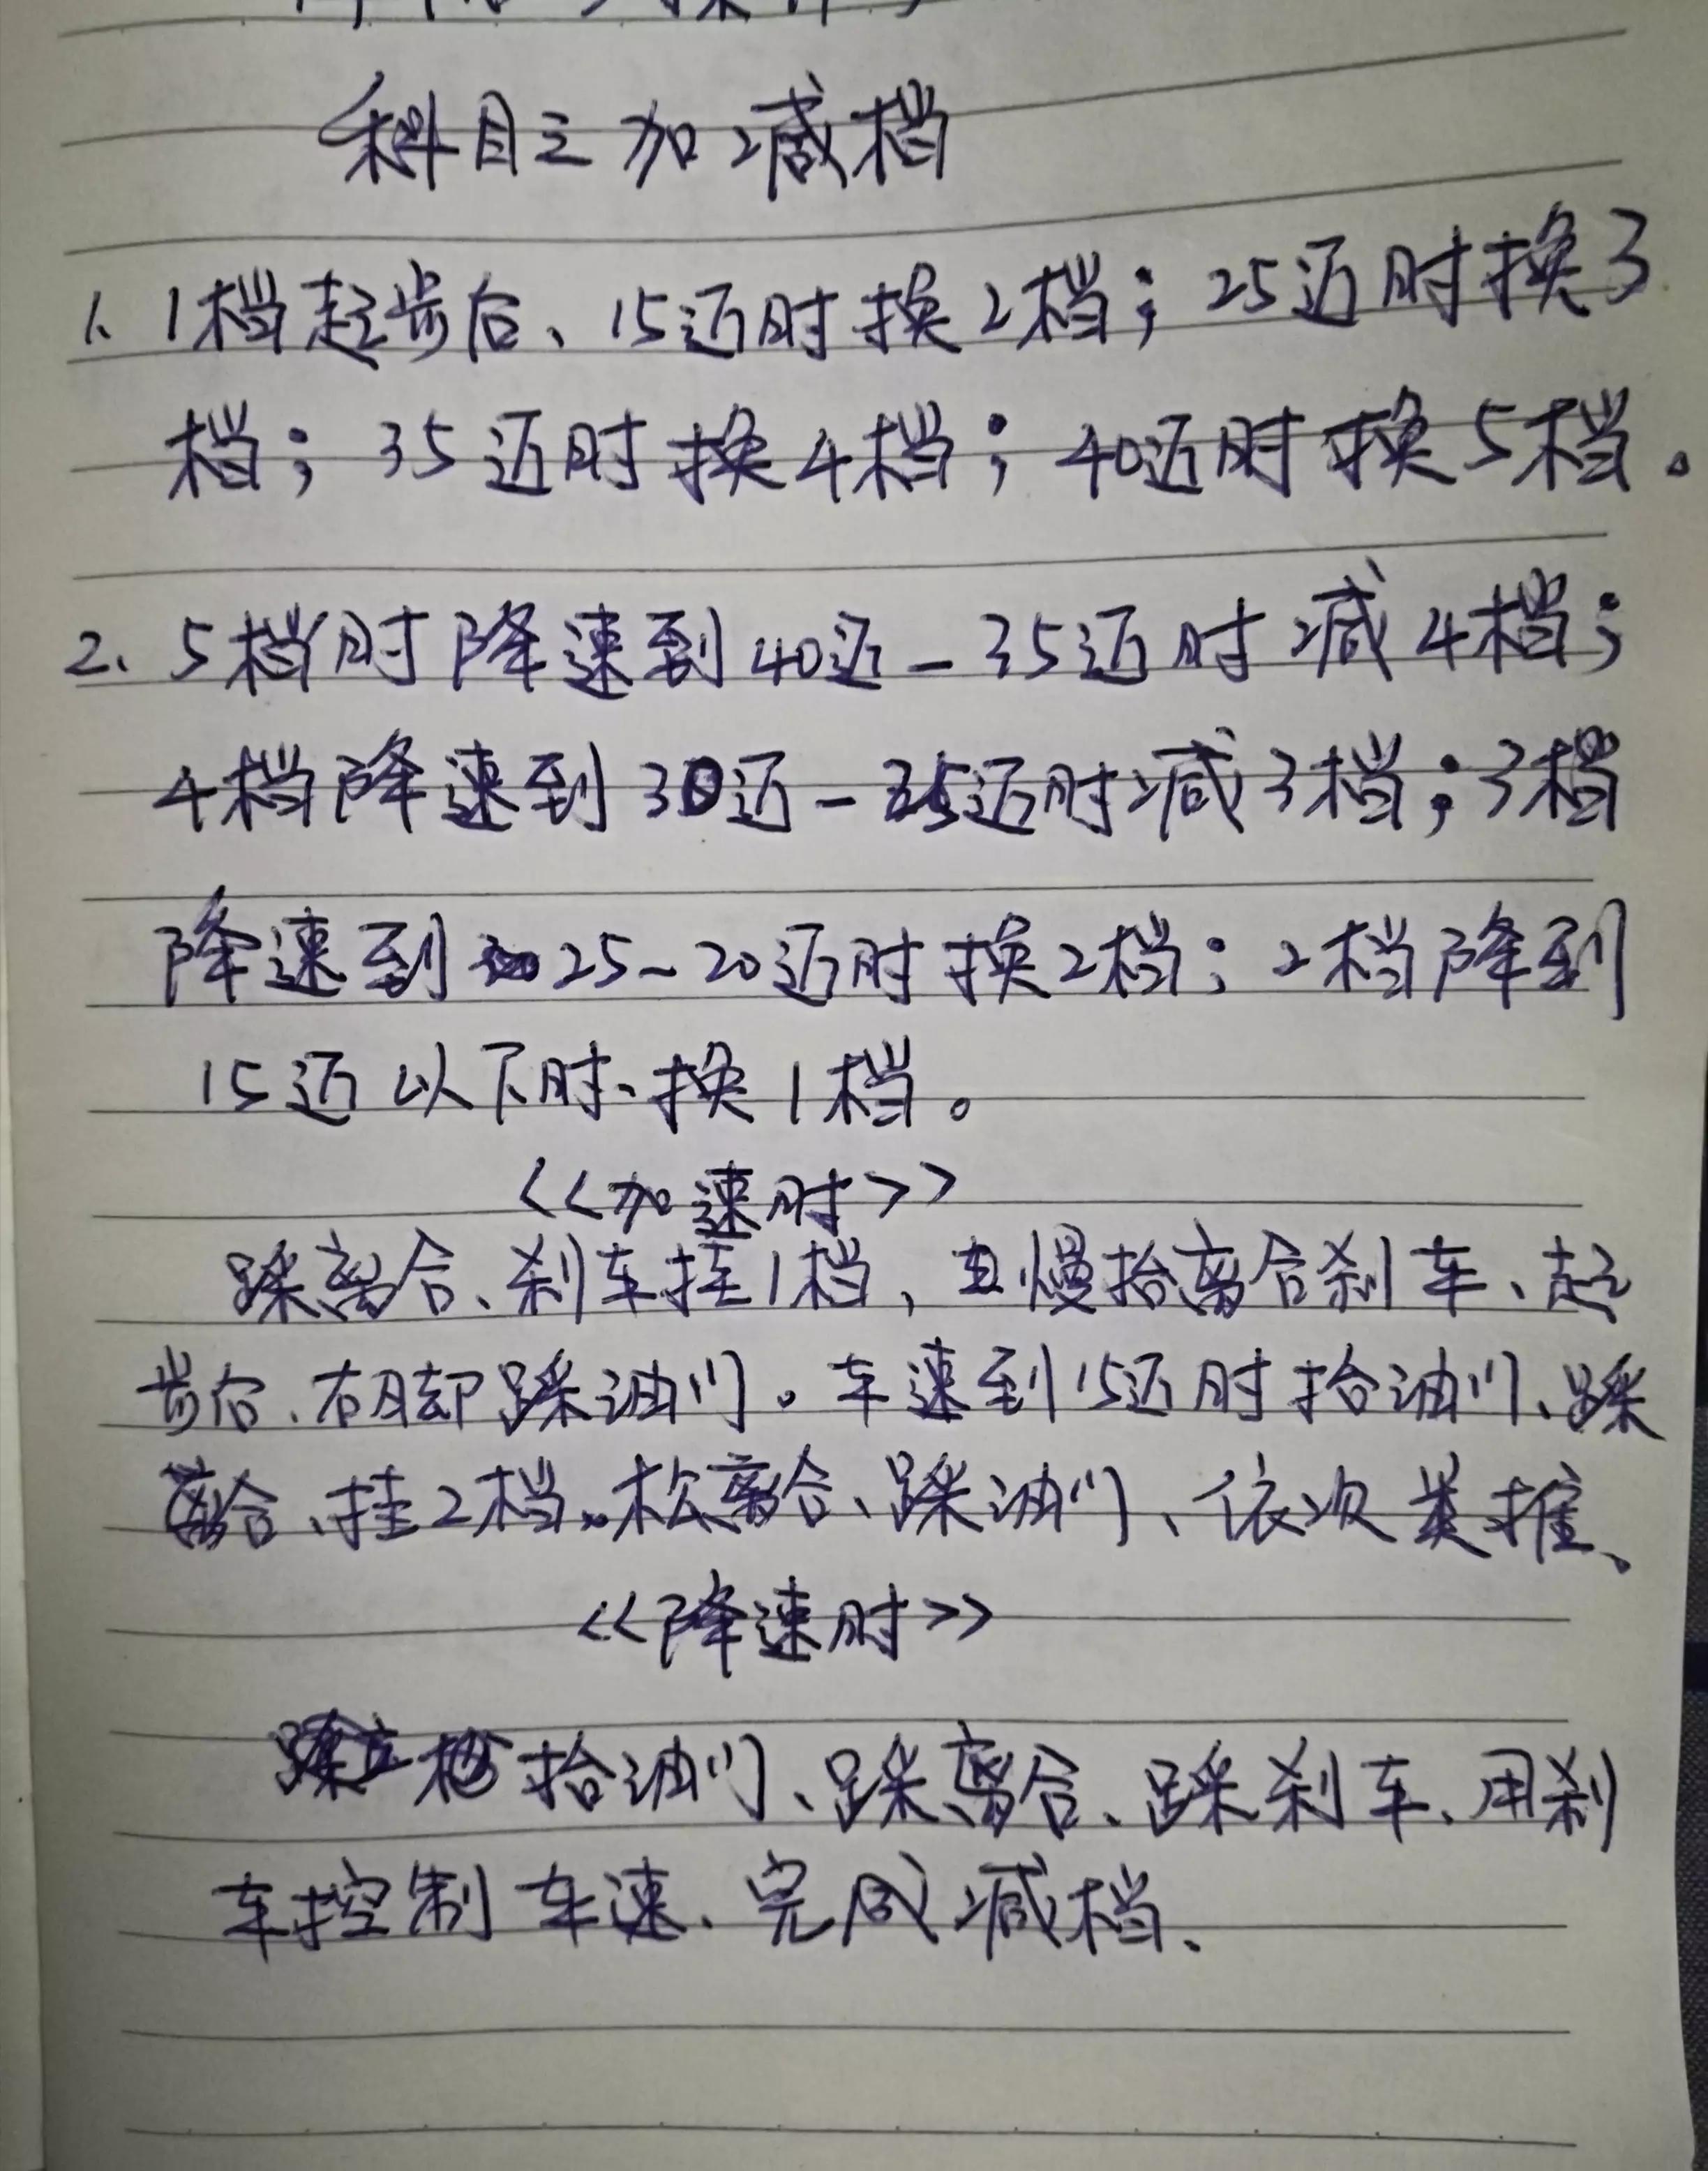 科目三加减档
1、1档起步后、15迈时换2档；25迈时换3
档；35迈时换4档；40迈时换5档。
2、5档时降速到40迈-35迈时减4档；
4档降速到30迈-25迈时减3档；3档
降速到25-20迈时换2档；2档降到
15迈以下时、换1档。
<<加速时>>
踩离合、刹车挂1档，慢抬离合刹车、起
步后、右脚踩油门。车速到15迈时抬油门、踩
离合、挂2档、松离合、踩油门、依次类推、
<<降速时>>
抬油门、踩离合、踩刹车、用刹
车控制车速、完成减档、